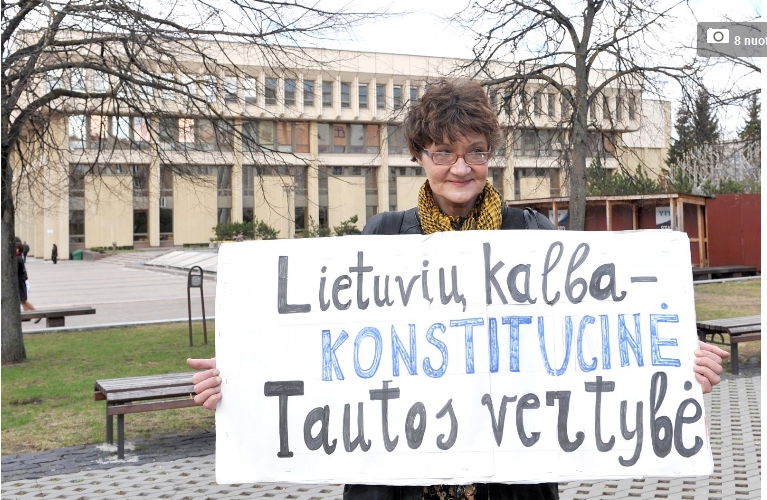 8 nuot
Lietuvių kalba –
KONSTITUCINĖ
Tautos vertybė